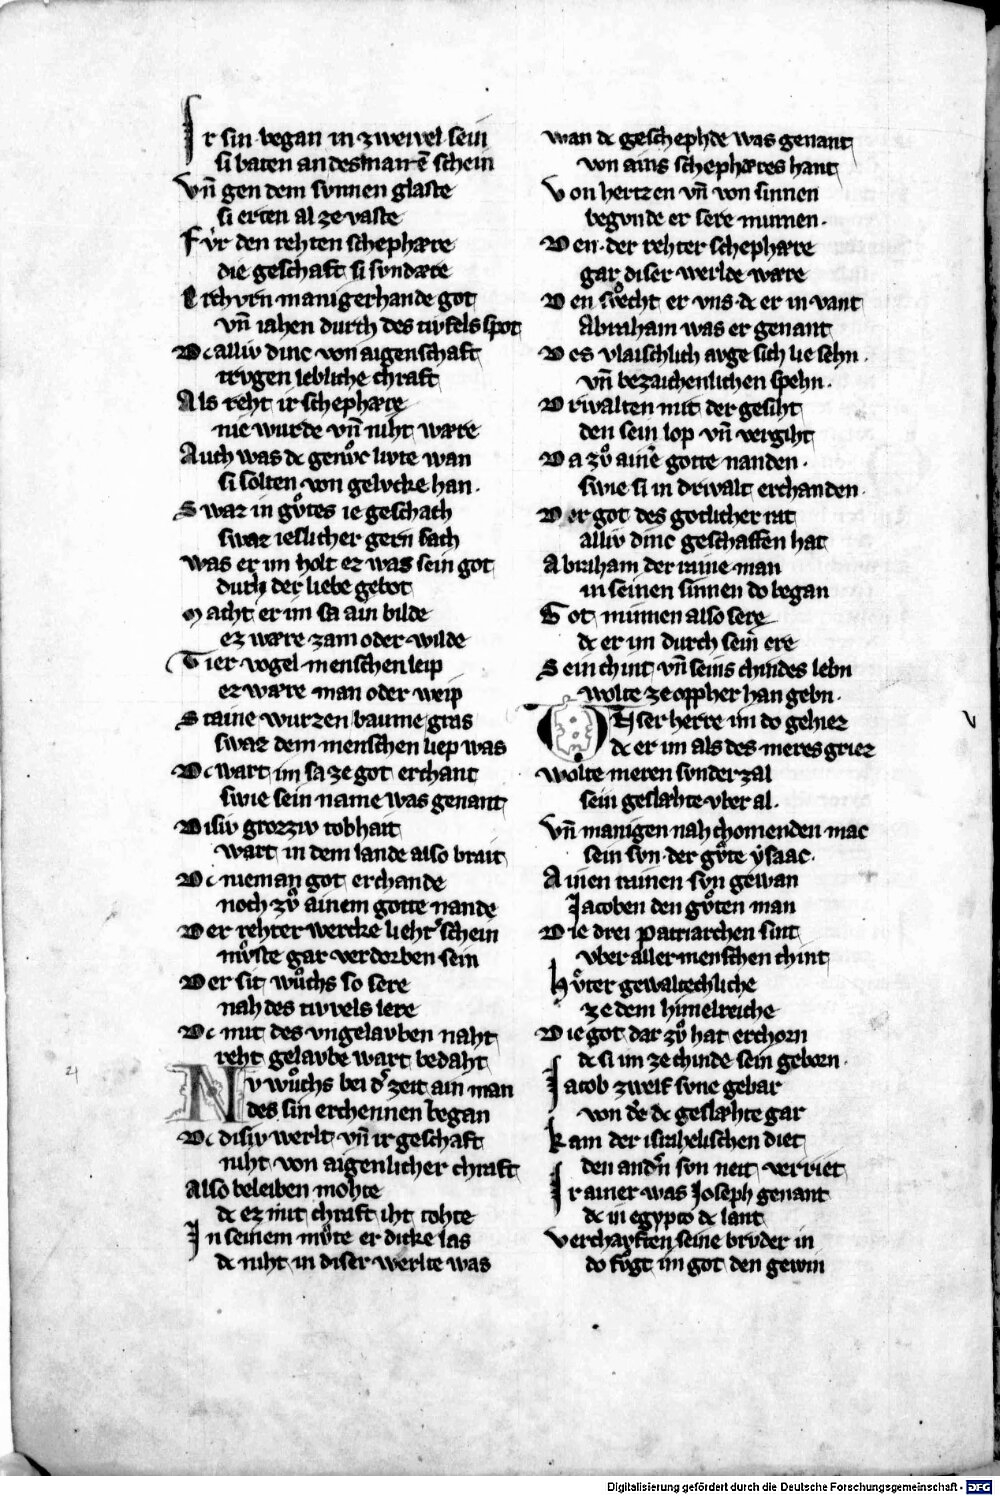 Ir sin began in zweivel sein
si baten an des manē schein
Vn̄ gen dem svnnen glaste
si erten al ze vaste
Fvͤr den rehten schephære
die geschaft si svndære
vn̄ iahen durch des tivfels spot
Dc alliv dinc von aigenschaft
trvgen lebliche chraft
Als reht ir schephære
nie wurde vn̄ niht wære
Auch was dc genvͦc livte wan
si solten von gelvcke han.
Swaz in gvͦtes ie geschach
swaz ieslicher gern sach
was er im holt ez was sein got
durch der liebe gebot
Macht er im sa ain bilde
ez wære zam oder wilde
Tier vogel menschen leip
ez wære man oder weip
Staine wurzen baume gras
swaz dem menschen liep was
Dc wart im sa ze got erchant
swie sein name was genant
Disiv grozziv tobhait
wart in dem lande also brait
Dc nieman got erchande
noch zvͦ ainem gotte nande
Der rehter wercke lieht schein
mvͦste gar verdorben sein
Der sit wuͦchs so sere
nah des tivvels lere
Dc mit des vngelavben naht
reht gelavbe wart bedaht
Nv wuͦchs bei dʼ zeit ain man
des sin erchennen began
Dc disiv werlt vn̄ ir geschaft
niht von aigenlicher chraft
Also beleiben mohte
dc ez mit chraft iht tohte
In seinem mvͦte er dicke las
dc niht in diser werlte was
wan dc geschephde was genant
von ains schephæres hant
Von hertzen vn̄ von sinnen
begvnde er sere minnen.
Den der rehter schephære
gar diser werlde wære
Den svͦcht er vns dc er in vant
Abraham was er genant
Des vlaischlich avge sich lie sehn.
vn̄ bezaichenlichen spehn.
Drivalten mit der gesiht
den sein lop vn̄ vergiht
Da zvͦ ainē gotte nanden.
swie si in drivalt erchanden.
Der got des gotlicher rat
alliv dinc geschaffen hat
Abraham der raine man
in seinen sinnen do began
Got minnen also sere
dc er im durch sein ere
Sein chint vn̄ seins chindes lebn
wolte ze oppher han gebn.
Unser herre im do gehiez
dc er im als des meres griez
wolte meren svnder zal
sein geslæhte vber al.
Vn̄ manigen nah chomenden mac
sein svn der gvͦte ysaac.
Ainen rainen svn gewan
Jacoben den gvͦten man
Die drei patriarchen sint
vber aller menschen chint
Hvͤter gewaltechliche
ze dem himelreiche
Die got dar zvͦ hat erchorn
dc si im ze chinde sein geborn.
Jacob zwelf svne gebar
von den dc geslæhte gar
kam der israhelischen diet
den andʼn svn neit verriet
Ir ainer was Joseph genant
dc in egypto dc lant
verchavften seine brvder in
do fvͦgt im got den gewin